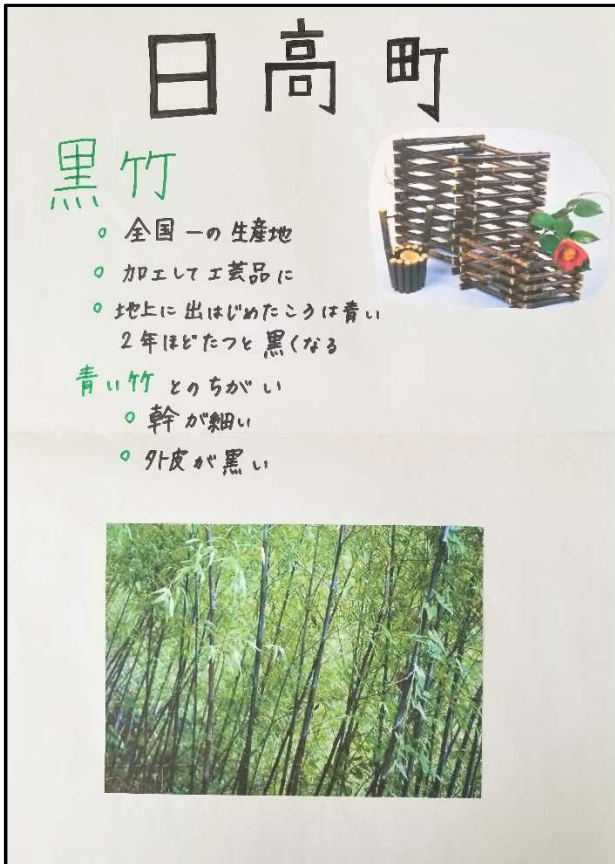 日高町
黒竹
○ 全国一の生産地
○ 加工して工芸品に
○ 地上に出はじめたころは青い
2年ほどたつと黒くなる
青い竹とのちがい
○ 幹が細い
○ 外皮が黒い